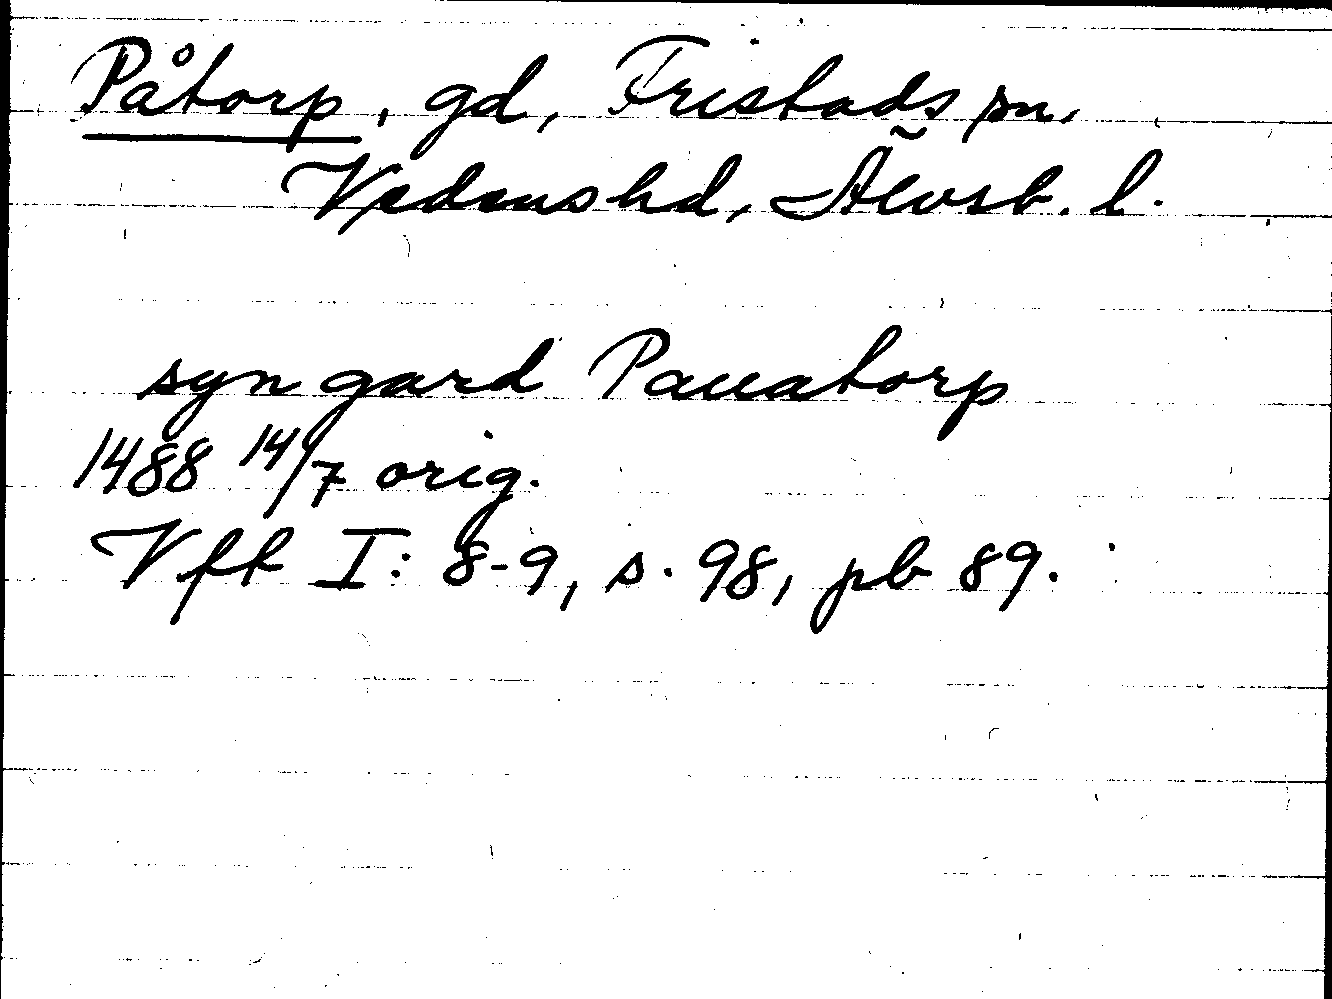 Påtorp, gd, Fristads sn.
Vedens hd, Älvsb. l.
syn gard Pauatorp
1488 14/7 orig.
Vfk I: 8-9, s. 98, pb 89.